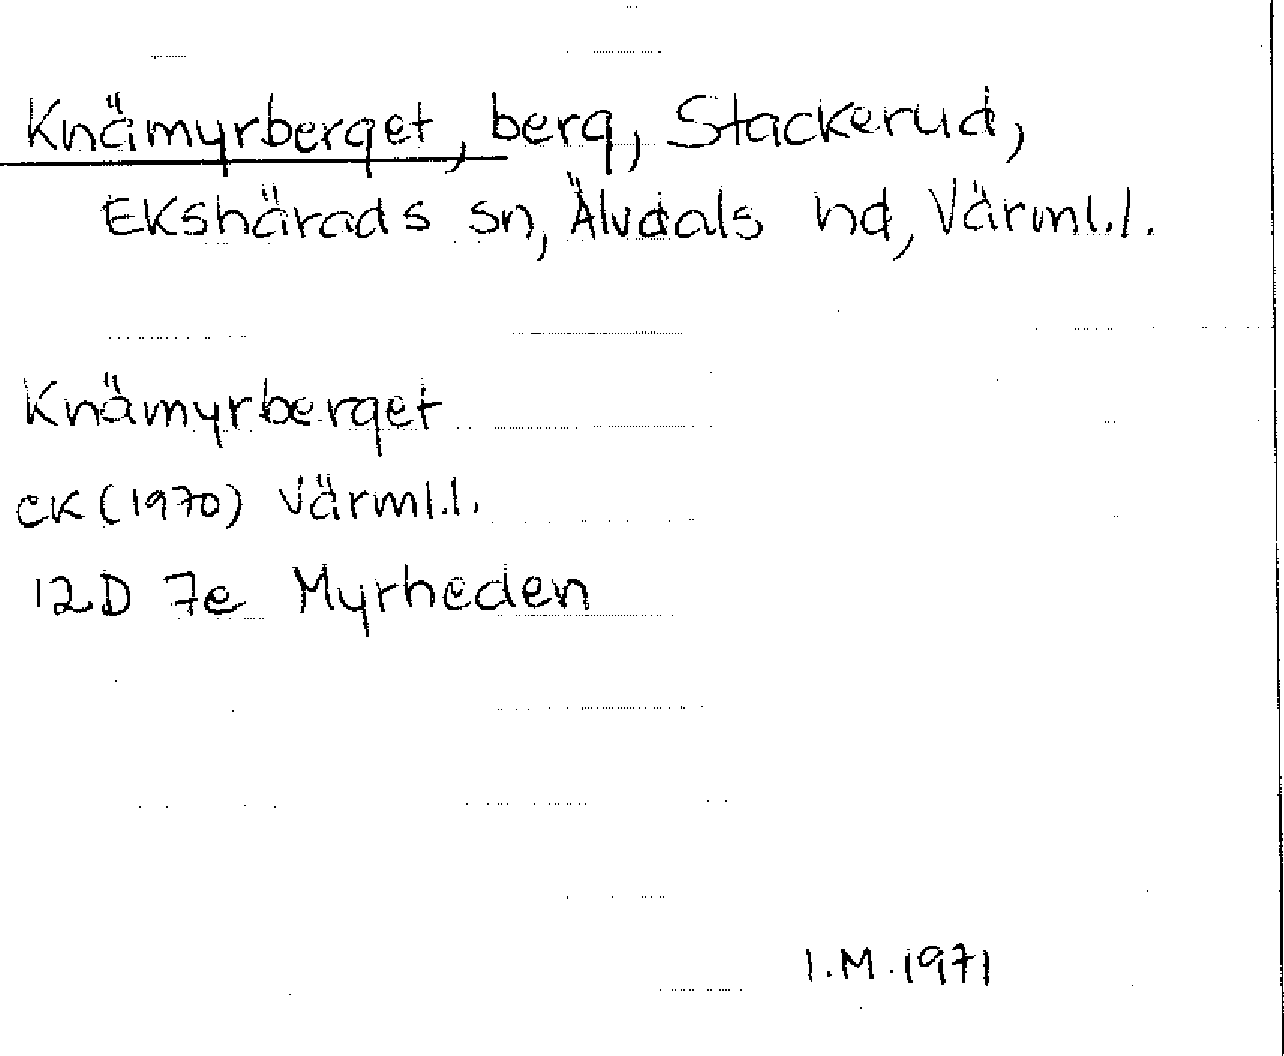 Knämyrberget, berg, Stackerud,
Ekshärads sn, Älvdals hd, Värml.l.
Knämyrberget
EK (1970) Värml.l.
12D 7e Myrheden
I.M. 1971